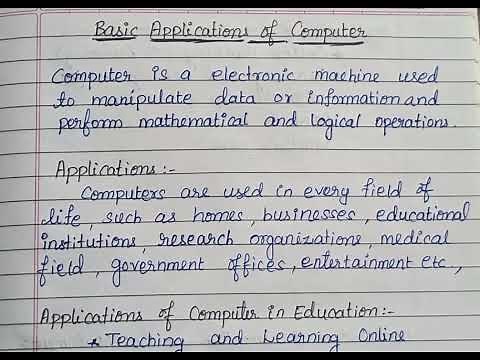 Basic Applications of Computer
Computer is a electronic machine used
to manipulate data or information and
perform mathematical and logical operations.
Applications :-
Computers are used in every field of
life, such as homes, businesses, educational
institutions, research organizations, medical
field, government offices, entertainment etc.,
Applications of Computer in Education:-
* Teaching and Learning Online